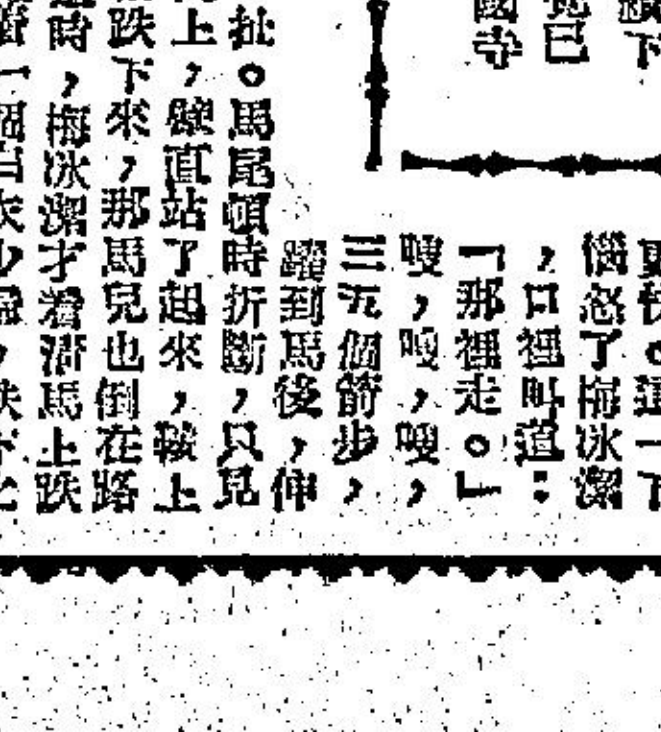 續下
覺已
國寺
更快。這一下
惱怒了梅冰潔
，口裡叫道：
「那裡走。」
嗖，嗖，嗖，
三五個箭步，
躍到馬後，伸
扯。馬尾頓時折斷，只見
上，壁直站了起來，鞍上
跌下來，那馬兒也倒在路
時，梅冰潔才看清馬上跌
一個白衣少